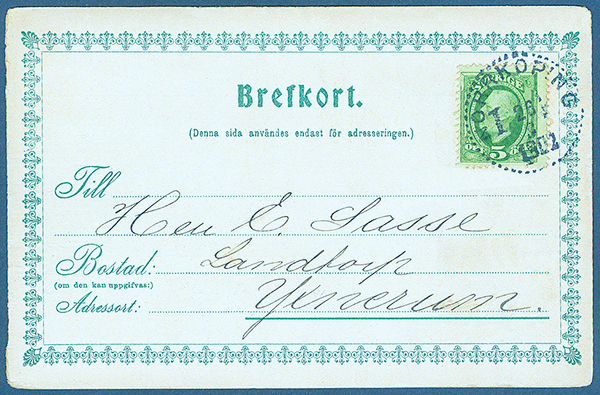 Brefkort.
(Denna sida användes endast för adresseringen.)
SVERIGE
5
NORRKÖPING
1902
Till
Herr E. Sasse
Bostad:
Landtorp
(om den kan uppgifvas:)
Adressort:
Yxnerum.